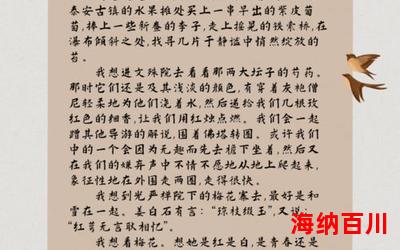 泰安古镇的水果摊处买上一串早出的紫皮葡
萄,捧上一些新鲜的李子,走上摇晃的铁索桥,在
瀑布倾斜之处,找寻几片于静谧中悄然绽放的
苔。
我想进文殊院去看看那两大坛子的芍药。
那时它们还是及其浅淡的颜色,有穿着灰袍僧
尼轻柔地为他们浇着水,然后递给我们几根玫
红色的细香,让我们用红烛点燃。我们会一起
蹭其他导游的解说,围着佛塔转圈。或许我们
中的一个会因为无趣而先去檐下坐着,然后又
在我们的嫌弃声中不情不愿地从地上爬起来,
象征性地在外围走两圈,走得很快。
我想到光严禅院下的梅花寨去,最好是和
雪在一起。姜白石有言:“琼枝缀玉”,又说:
“红萼无言耿相忆”。
我想看梅花。想她是红是白,是青春还是
海纳百川